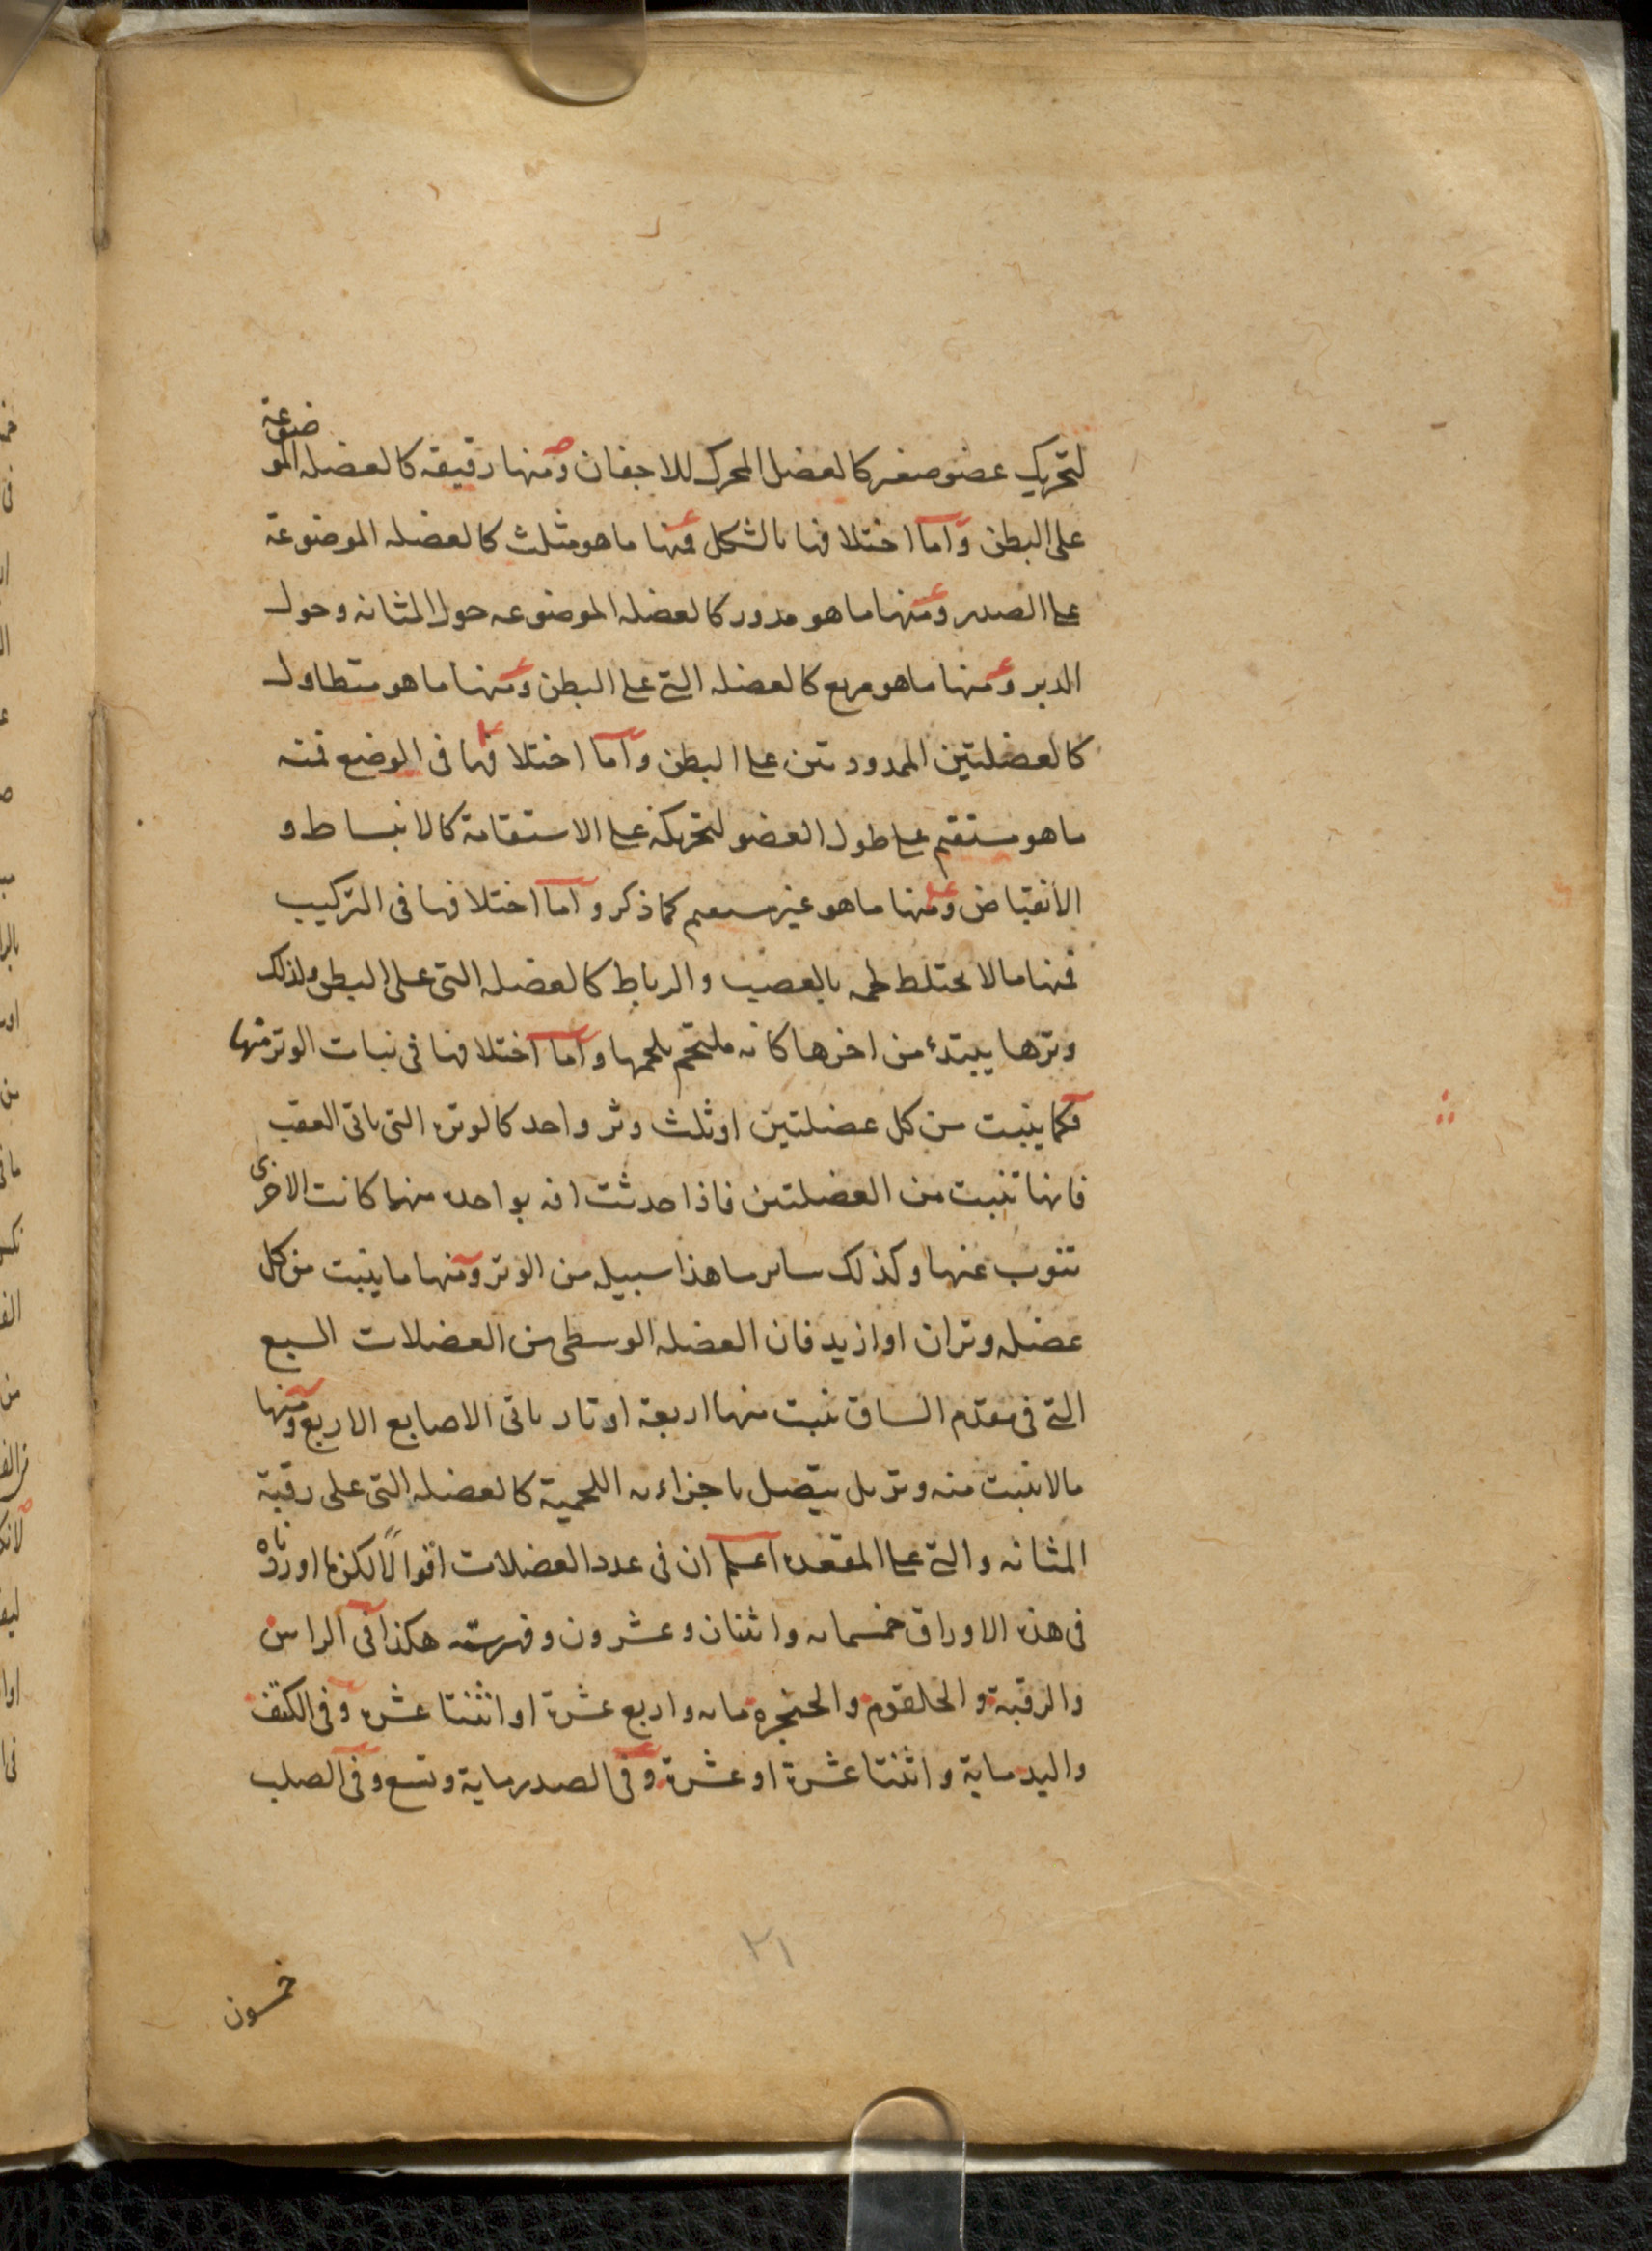 لتحريك عضو صغير كالعضل المحرك للاجفان ومنها رقيقه كالعضله الموضوعة
على البطن واما اختلافها بالشكل فمنها ما هو مثلث كالعضله الموضوعة
على الصدر ومنها ما هو مدور كالعضله الموضوعه حول المثانه وحول
الدبر ومنها ما هو مربع كالعضله التي على البطن ومنها ما هو متطاول
كالعضلتين الممدودتين على البطن واما اختلافها فى الوضع فمنه
ما هو مستقيم على طول العضو لتحريكه على الاستقامة كالانبساط و
الانقباض ومنها ما هو غير مستقيم كما ذكر واما اختلافها فى التركيب
فمنها ما لا يختلط لحمه بالعصب والرباط كالعضله التى على البطن ولذلك
وترها يبتدئ من اخرها كانه ملتحم بلحمها واما اختلافها فى نبات الوتر منها
فكما ينبت من كل عضلتين او ثلث وتر واحد كالوتره التى تاتى العقب
فانها تنبت من العضلتين فاذا حدثت افه بواحده منهما كانت الاخرى
تنوب عنها وكذلك ساير ما هذا سبيله من الوتر ومنها ما ينبت من كل
عضله وتران او ازيد فان العضله الوسطى من العضلات السبع
التي فى مقدم الساق ينبت منها اربعة اوتار تاتى الاصابع الاربع ومنها
ما لا ينبت منه وتر بل يتصل باجزاءه اللحمية كالعضله التى على رقبة
المثانه والتي على المقعده اعلم ان فى عدد العضلات اقوالاً لكن ما اوردناه
فى هذه الاوراق خمسمايه واثنان وعشرون وفهرسته هكذا فى الراس
والرقبة والحلقوم والحنجره مايه واربع عشرة او اثنتا عشره وفى الكتف
واليد ماية واثنتا عشرة او عشرة وفى الصدر ماية وتسع وفى الصلب
٢١
خمسون